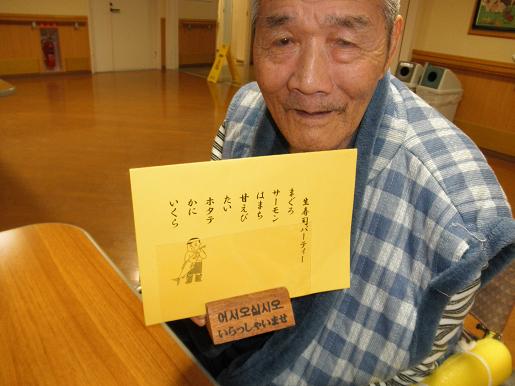 生寿司パーティー
まぐろ
サーモン
はまち
甘えび
たい
ホタテ
かに
いくら
어서오십시오
いらっしゃいませ